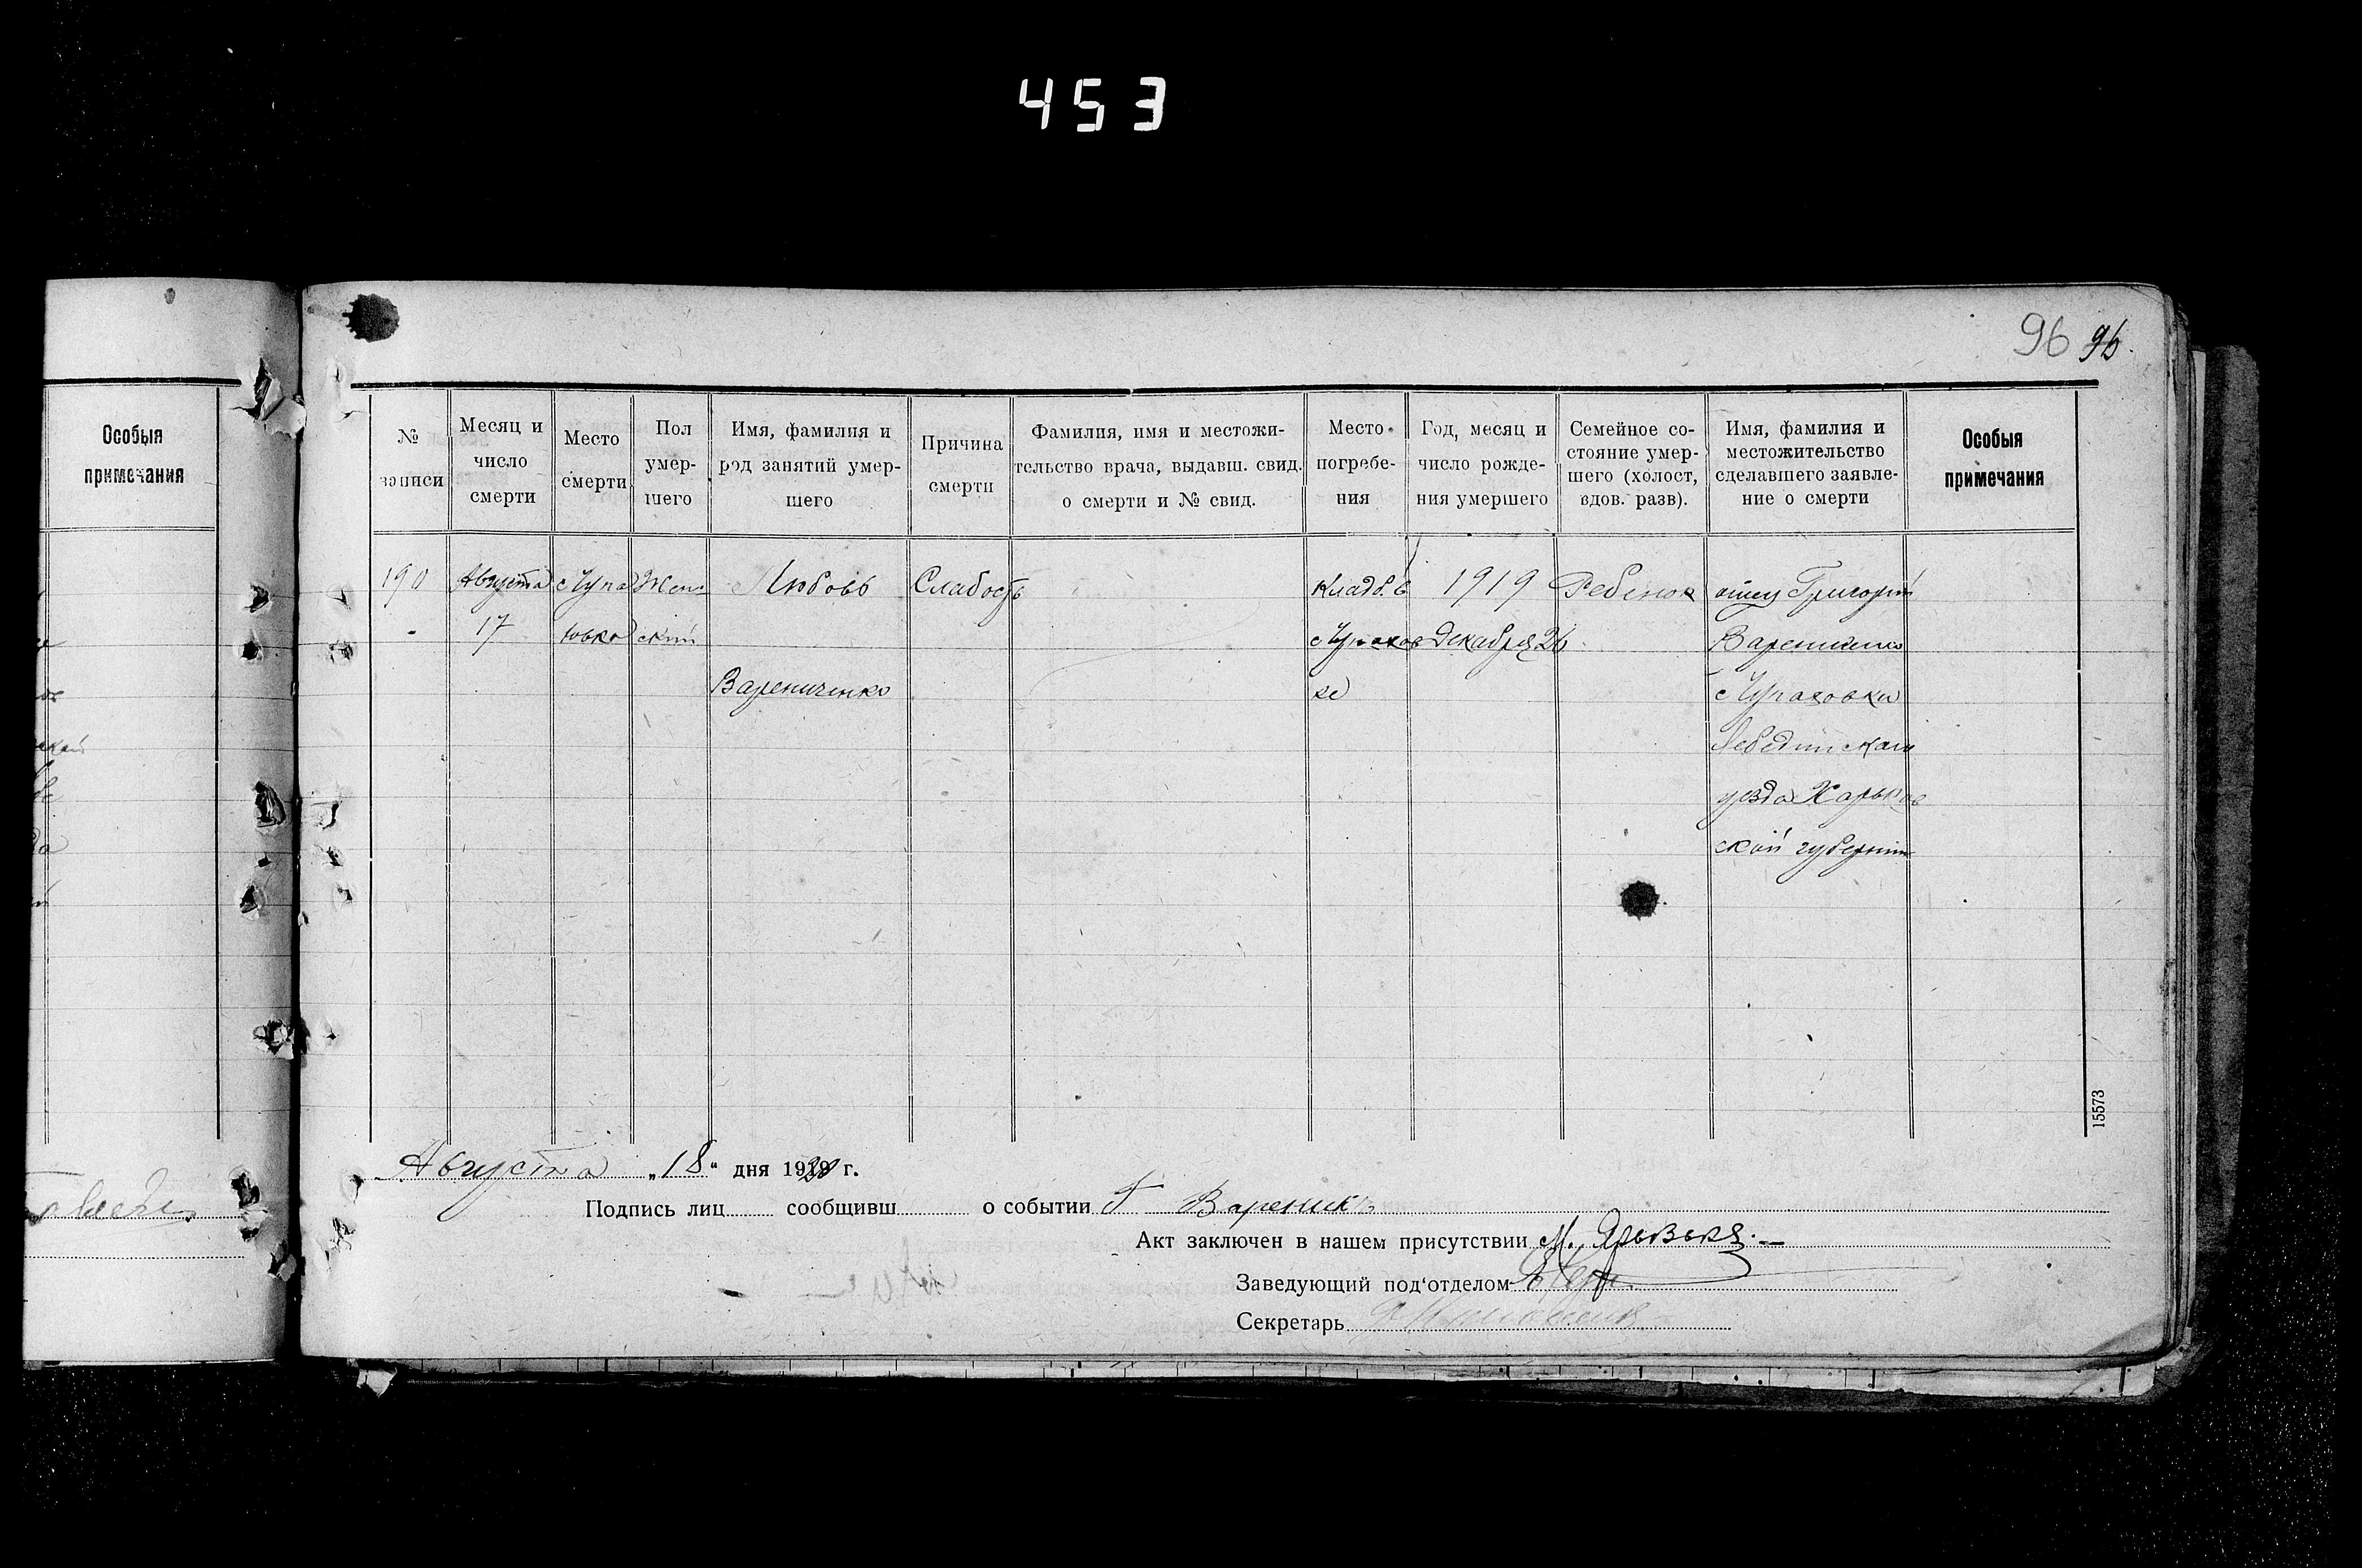 453
96 96.
Особыя
примечания
№
записи
Месяц и
число
смерти
Место
смерти
Пол
умер-
шего
Имя, фамилия и
род занятий умер-
шего
Причина
смерти
Фамилия, имя и местожи-
тельство врача, выдавш. свид.
о смерти и № свид.
Место
погребе-
ния
Год, месяц и
число рожде-
ния умершего
Семейное со-
стояние умер-
шего (холост,
вдов. разв).
Имя, фамилия и
местожительство
сделавшего заявле-
ние о смерти
Особыя
примечания
190
Августа
17
Жен
ский
Любовь
Варениченко
Слабость
Кладб. в
1919
Декабря 26
Ребенок
отец Григорий
Лебединскаго
уезда Харьков
ской губернии
15573
Августа „18“ дня 1920 г.
Подпись лиц сообщивш о событии Г Вареник
Акт заключен в нашем присутствии М.
Заведующий под‘отделом
Секретарь